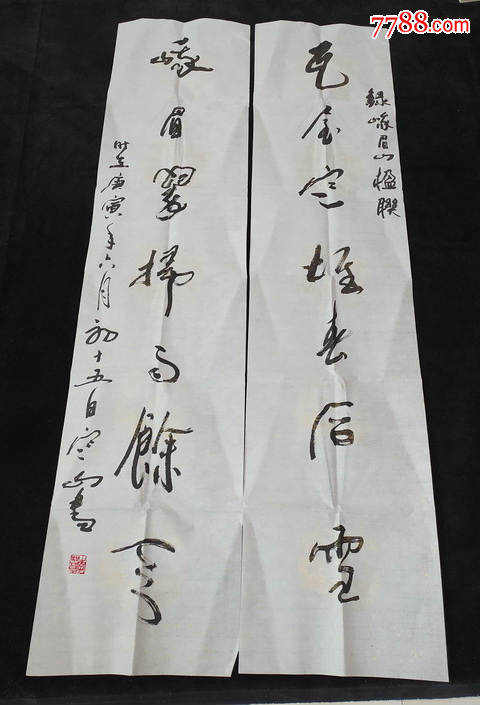 7788.com
錄峨眉山楹聯
瓦屋寒堆春后雪
峨眉翠掃雨餘天
时在庚寅年六月初十五日寒山書